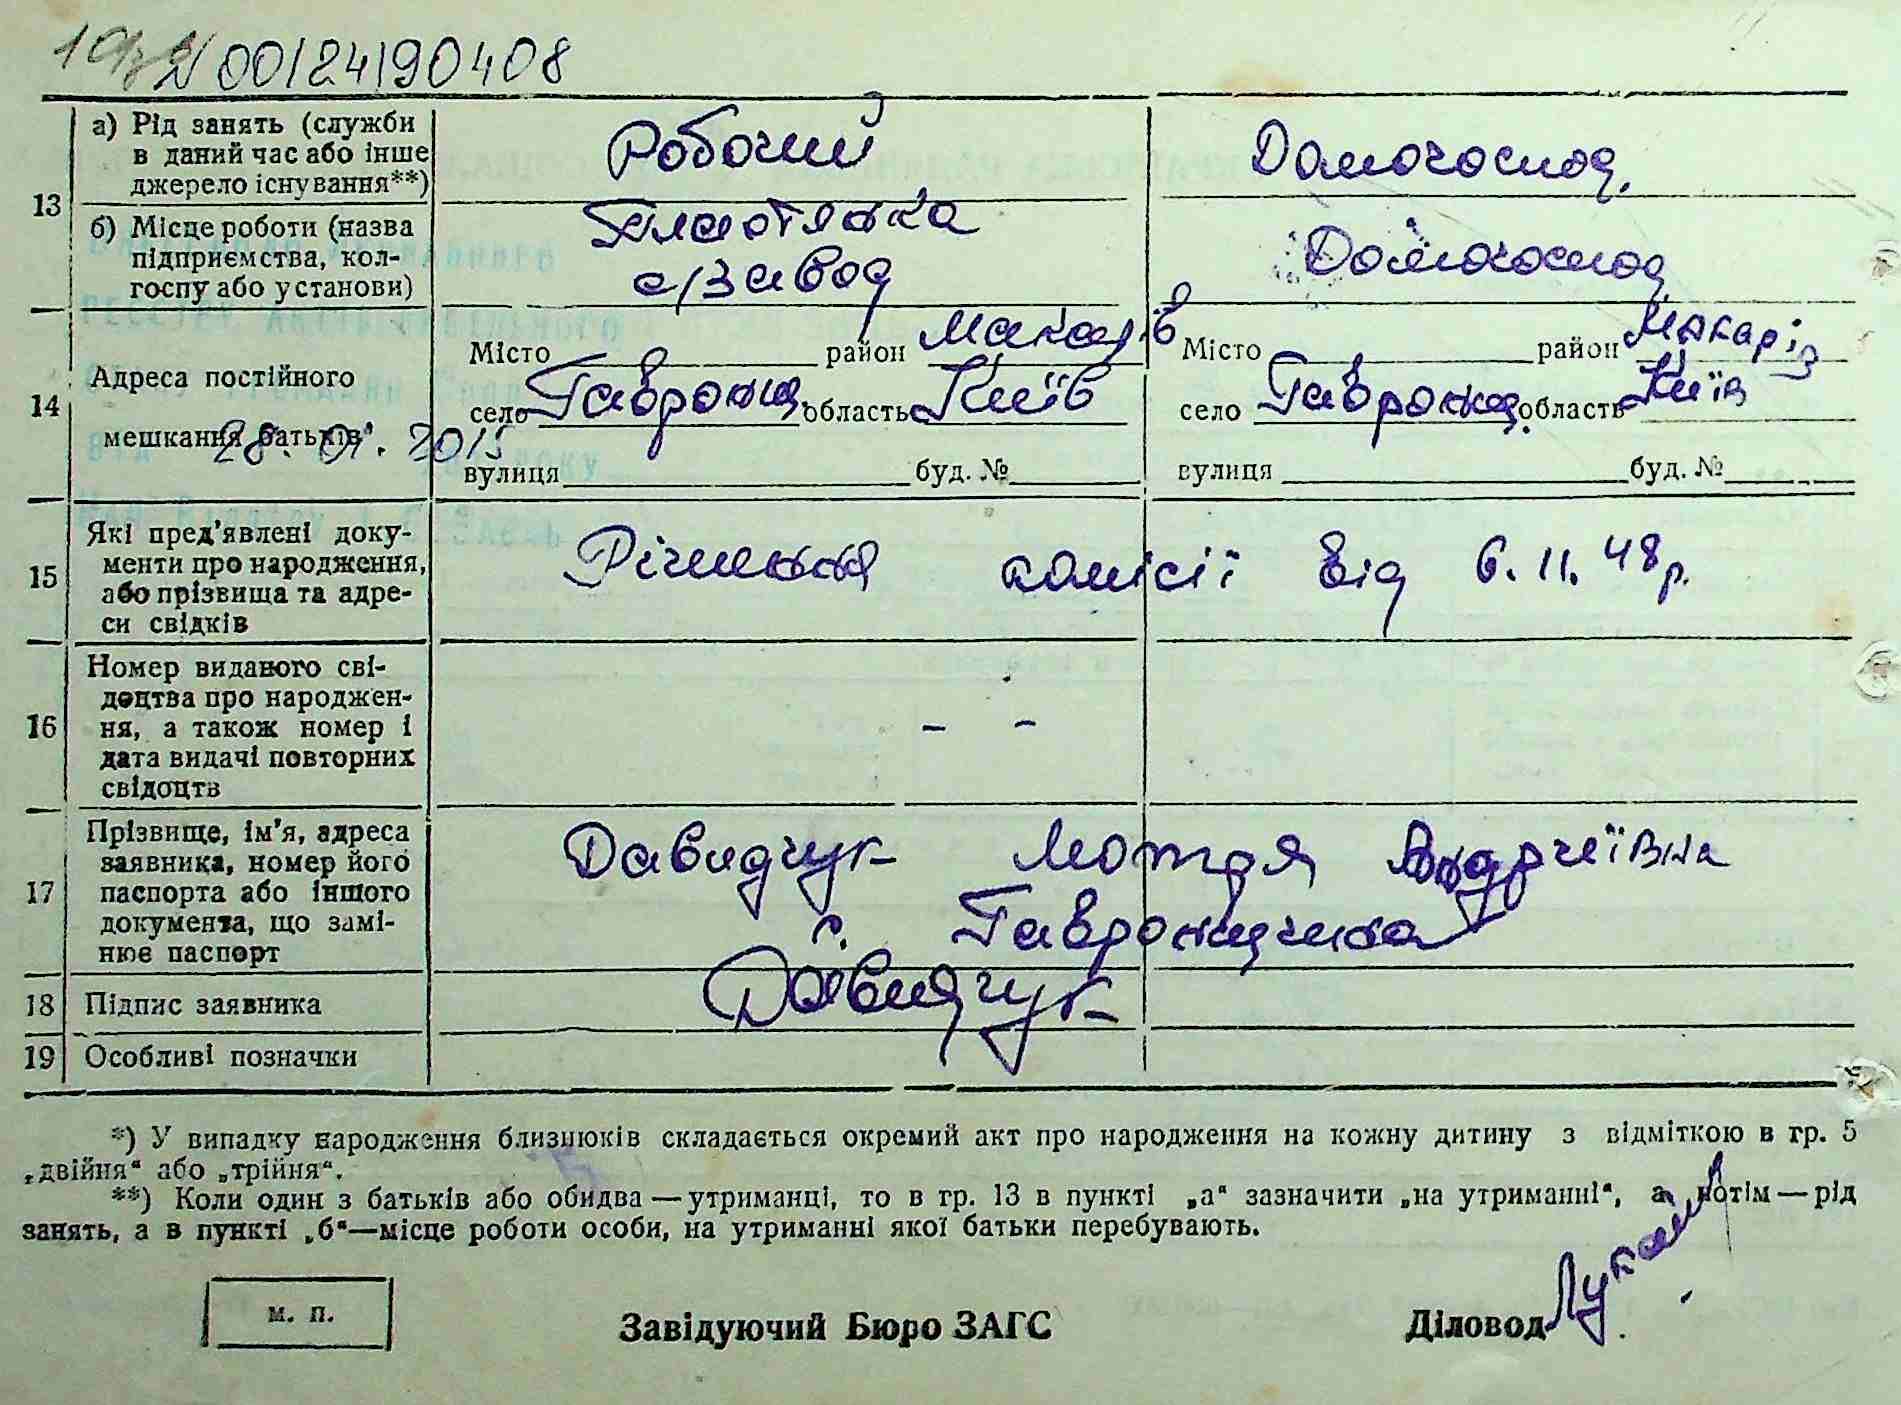 N 00124190408
13
а) Рід занять (служби
в даний час або інше
джерело існування**)
Робочий
Домогоспод.
б) Місце роботи (назва
підприємства, кол-
госпу або установи)
с/завод
Домогоспод
14
Адреса постійного
мешкання батьків
28. 01. 2015
Місто район Макарів
село Гавронщ. область Київ
вулиця буд. №
Місто район Макарів
село Гавронщ. область Київ
вулиця буд. №
15
Які пред'явлені доку-
менти про народження,
або прізвища та адре-
си свідків
Рішення комісії від 6. 11. 48 р.
16
Номер виданого сві-
доцтва про народжен-
ня, а також номер і
дата видачі повторних
свідоцтв
– –
17
Прізвище, ім'я, адреса
заявника, номер його
паспорта або іншого
документа, що замі-
нює паспорт
Давидчук Мотря Андріївна
с. Гавронщина
18
Підпис заявника
Давидчук
19
Особливі позначки
*) У випадку народження близнюків складається окремий акт про народження на кожну дитину з відміткою в гр. 5
„двійня“ або „трійня“.
**) Коли один з батьків або обидва — утриманці, то в гр. 13 в пункті „а“ зазначити „на утриманні“, а потім — рід
занять, а в пункті „б“—місце роботи особи, на утриманні якої батьки перебувають.
м. п.
Завідуючий Бюро ЗАГС
Діловод